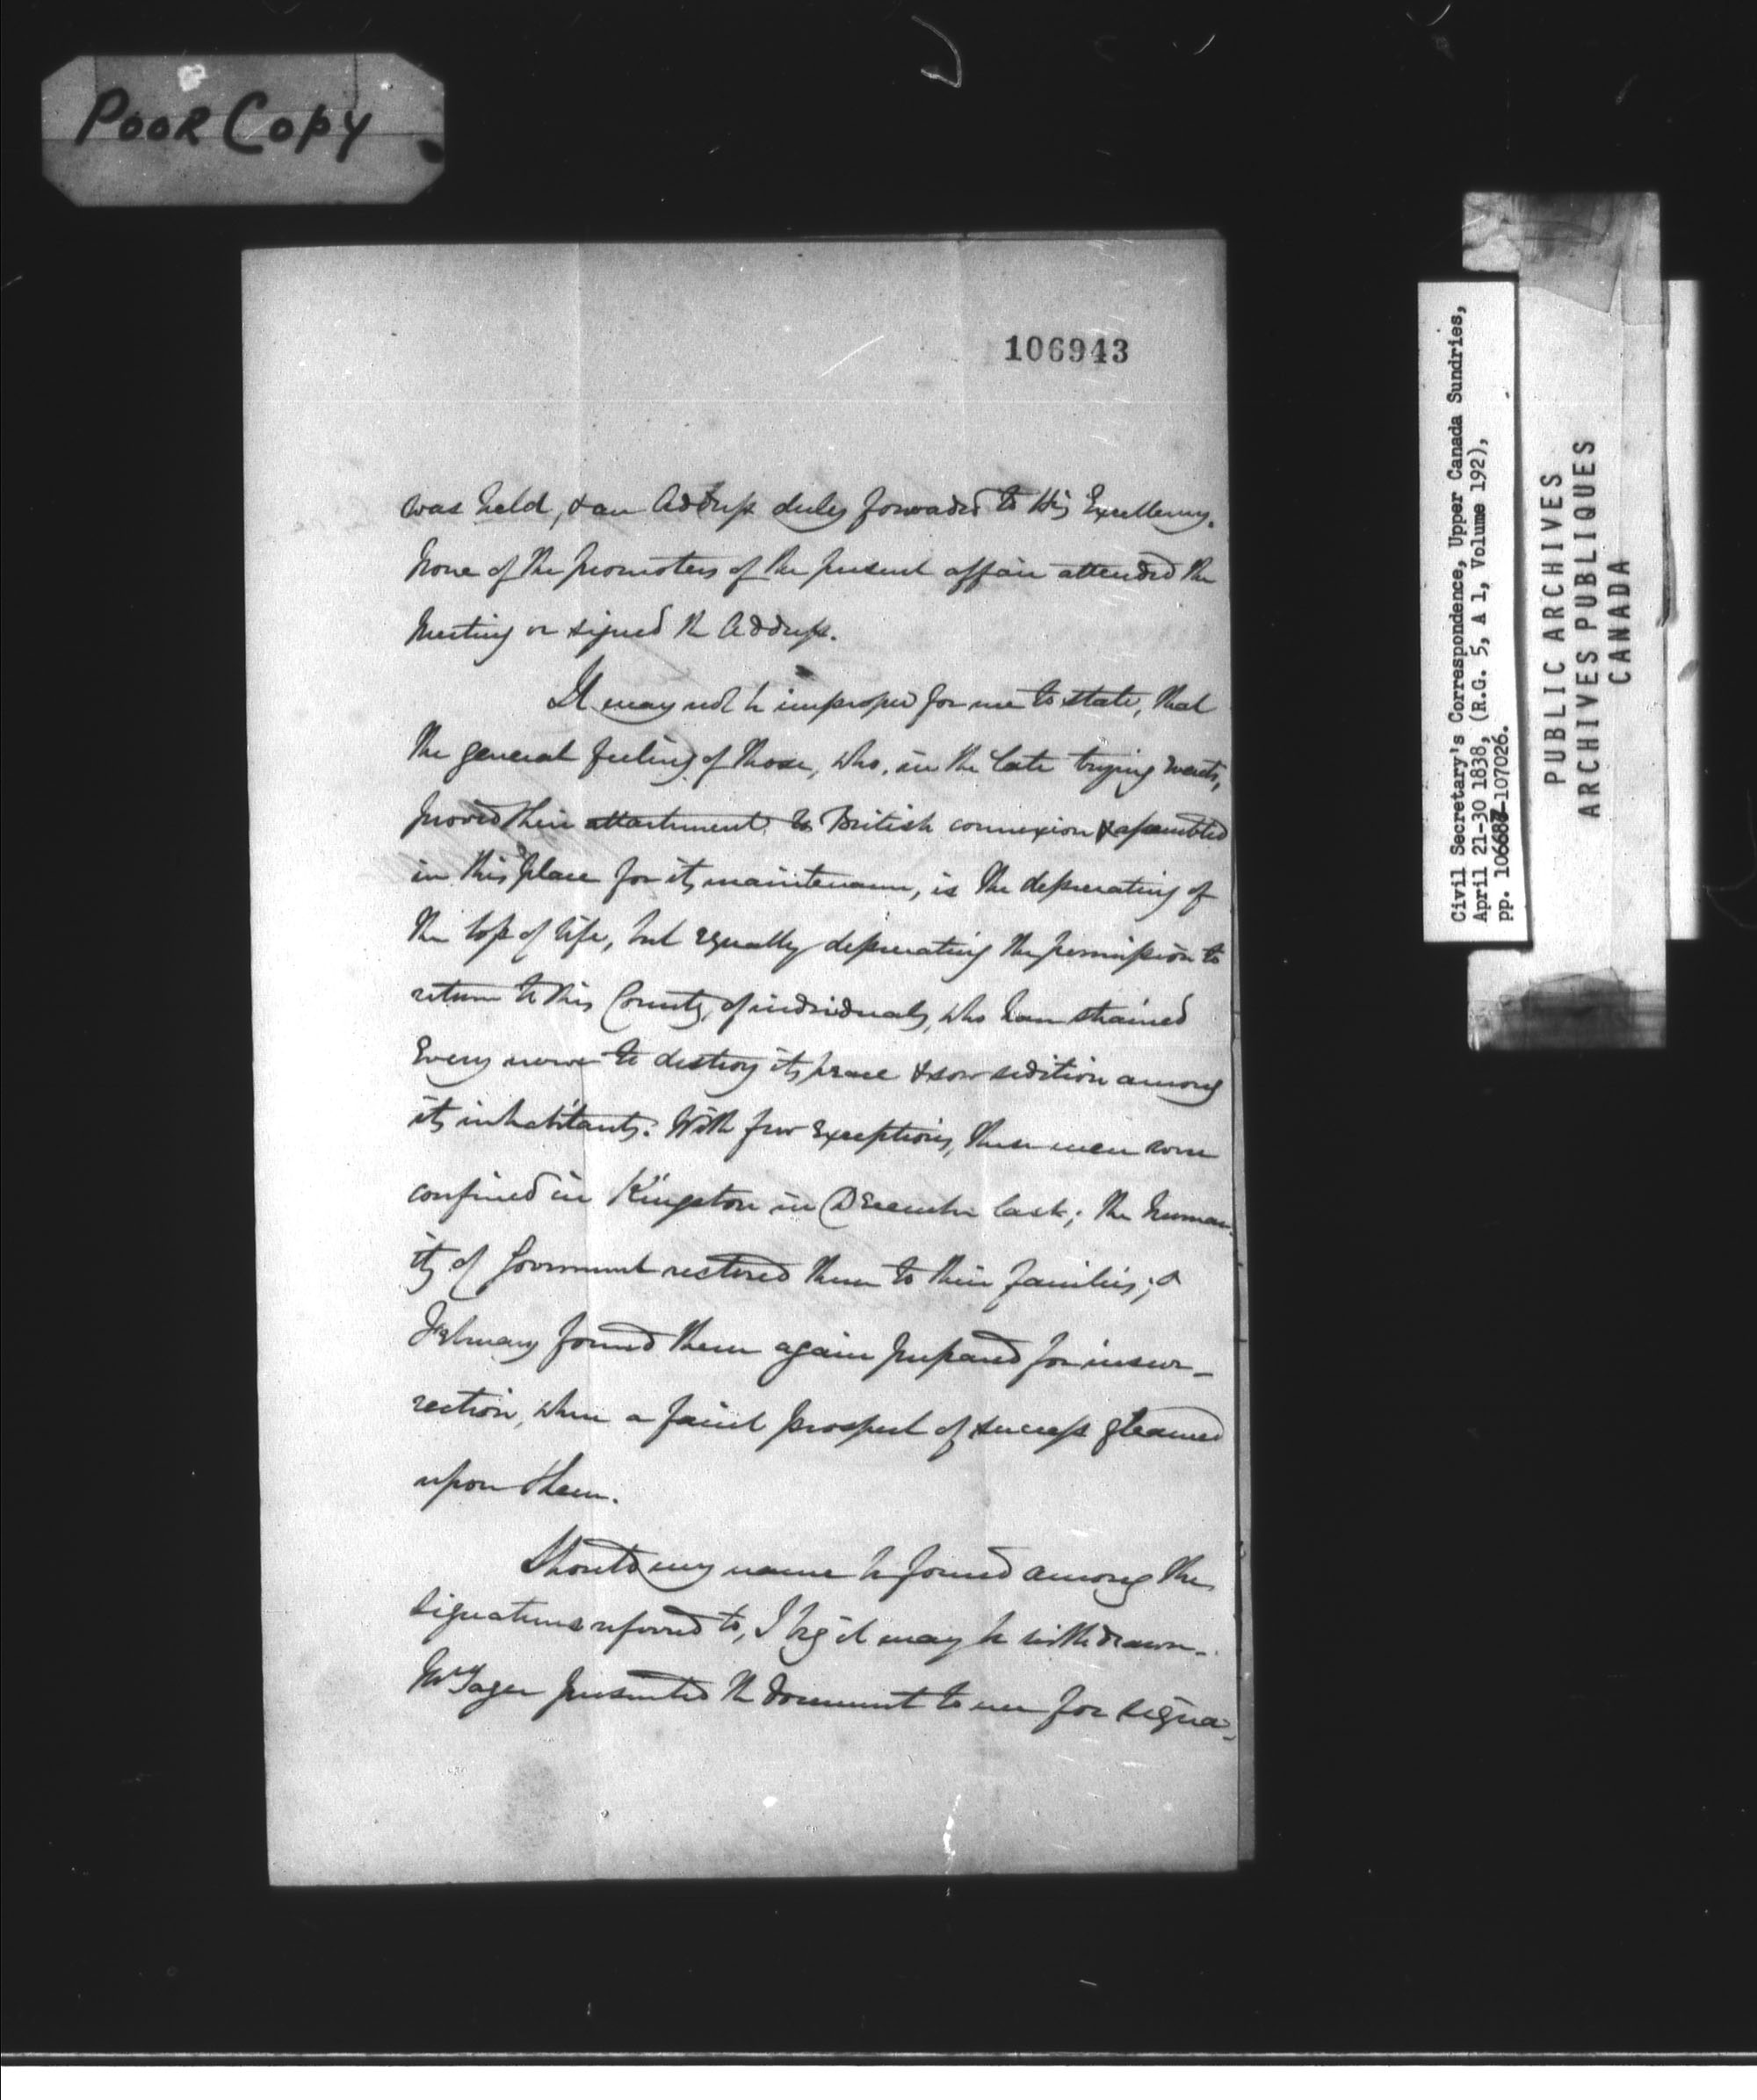 Poor Copy
106943
was held, & an Address duly forwarded to His Excellency.
None of the promoters of the present affair attended the
Meeting or signed the Address.
It may not be improper for me to state, that
the general feeling of those, who, in the late trying events,
proved their attachment to British connexion & assembled
in this place for its maintenance, is the deprecating of
the loss of life, but equally deprecating the permission to
return to this County, of individuals, who have strained
every nerve to destroy its peace & sow sedition among
its inhabitants. With few exceptions, these men were
confined in Kingston in December last; the human-
ity of Government restored them to their families; &
February found them again prepared for insur-
rection, when a faint prospect of success gleamed
upon them.
Should my name be found among the
signatures referred to, I beg it may be withdrawn.
Mr Yager presented the document to me for signa-
Civil Secretary's Correspondence, Upper Canada Sundries,
April 21-30 1838, (R.G. 5, A 1, Volume 192),
pp. 106687-107026.
PUBLIC ARCHIVES
ARCHIVES PUBLIQUES
CANADA